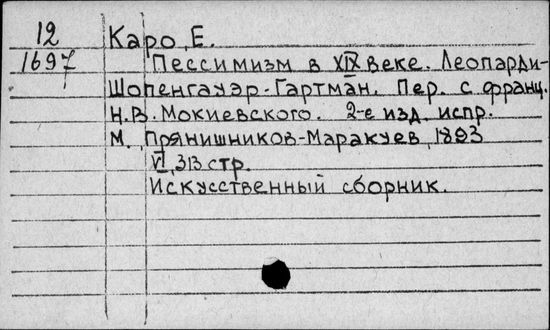 12
1697
Каро, Е.
Пессимизм в XIX веке. Леопарди-
Шопенгауэр-Гартман. Пер. с франц.
Н.В. Мокиевского. 2-е изд. испр.
М. Прянишников-Маракуев, 1893
VI, 313 стр.
Искусственный сборник.